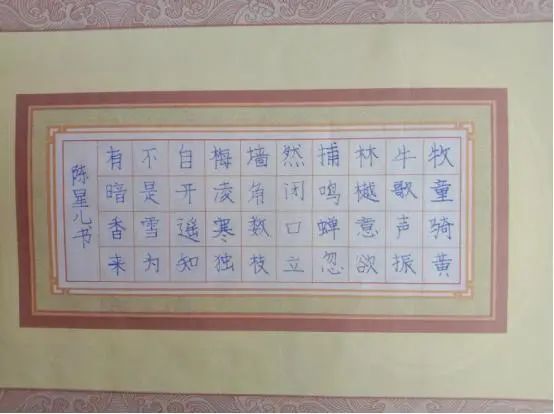 牧童骑黄
牛歌声振
林樾意欲
捕鸣蝉忽
然闭口立
墙角数枝
梅凌寒独
自开遥知
不是雪为
有暗香来
陈星儿书